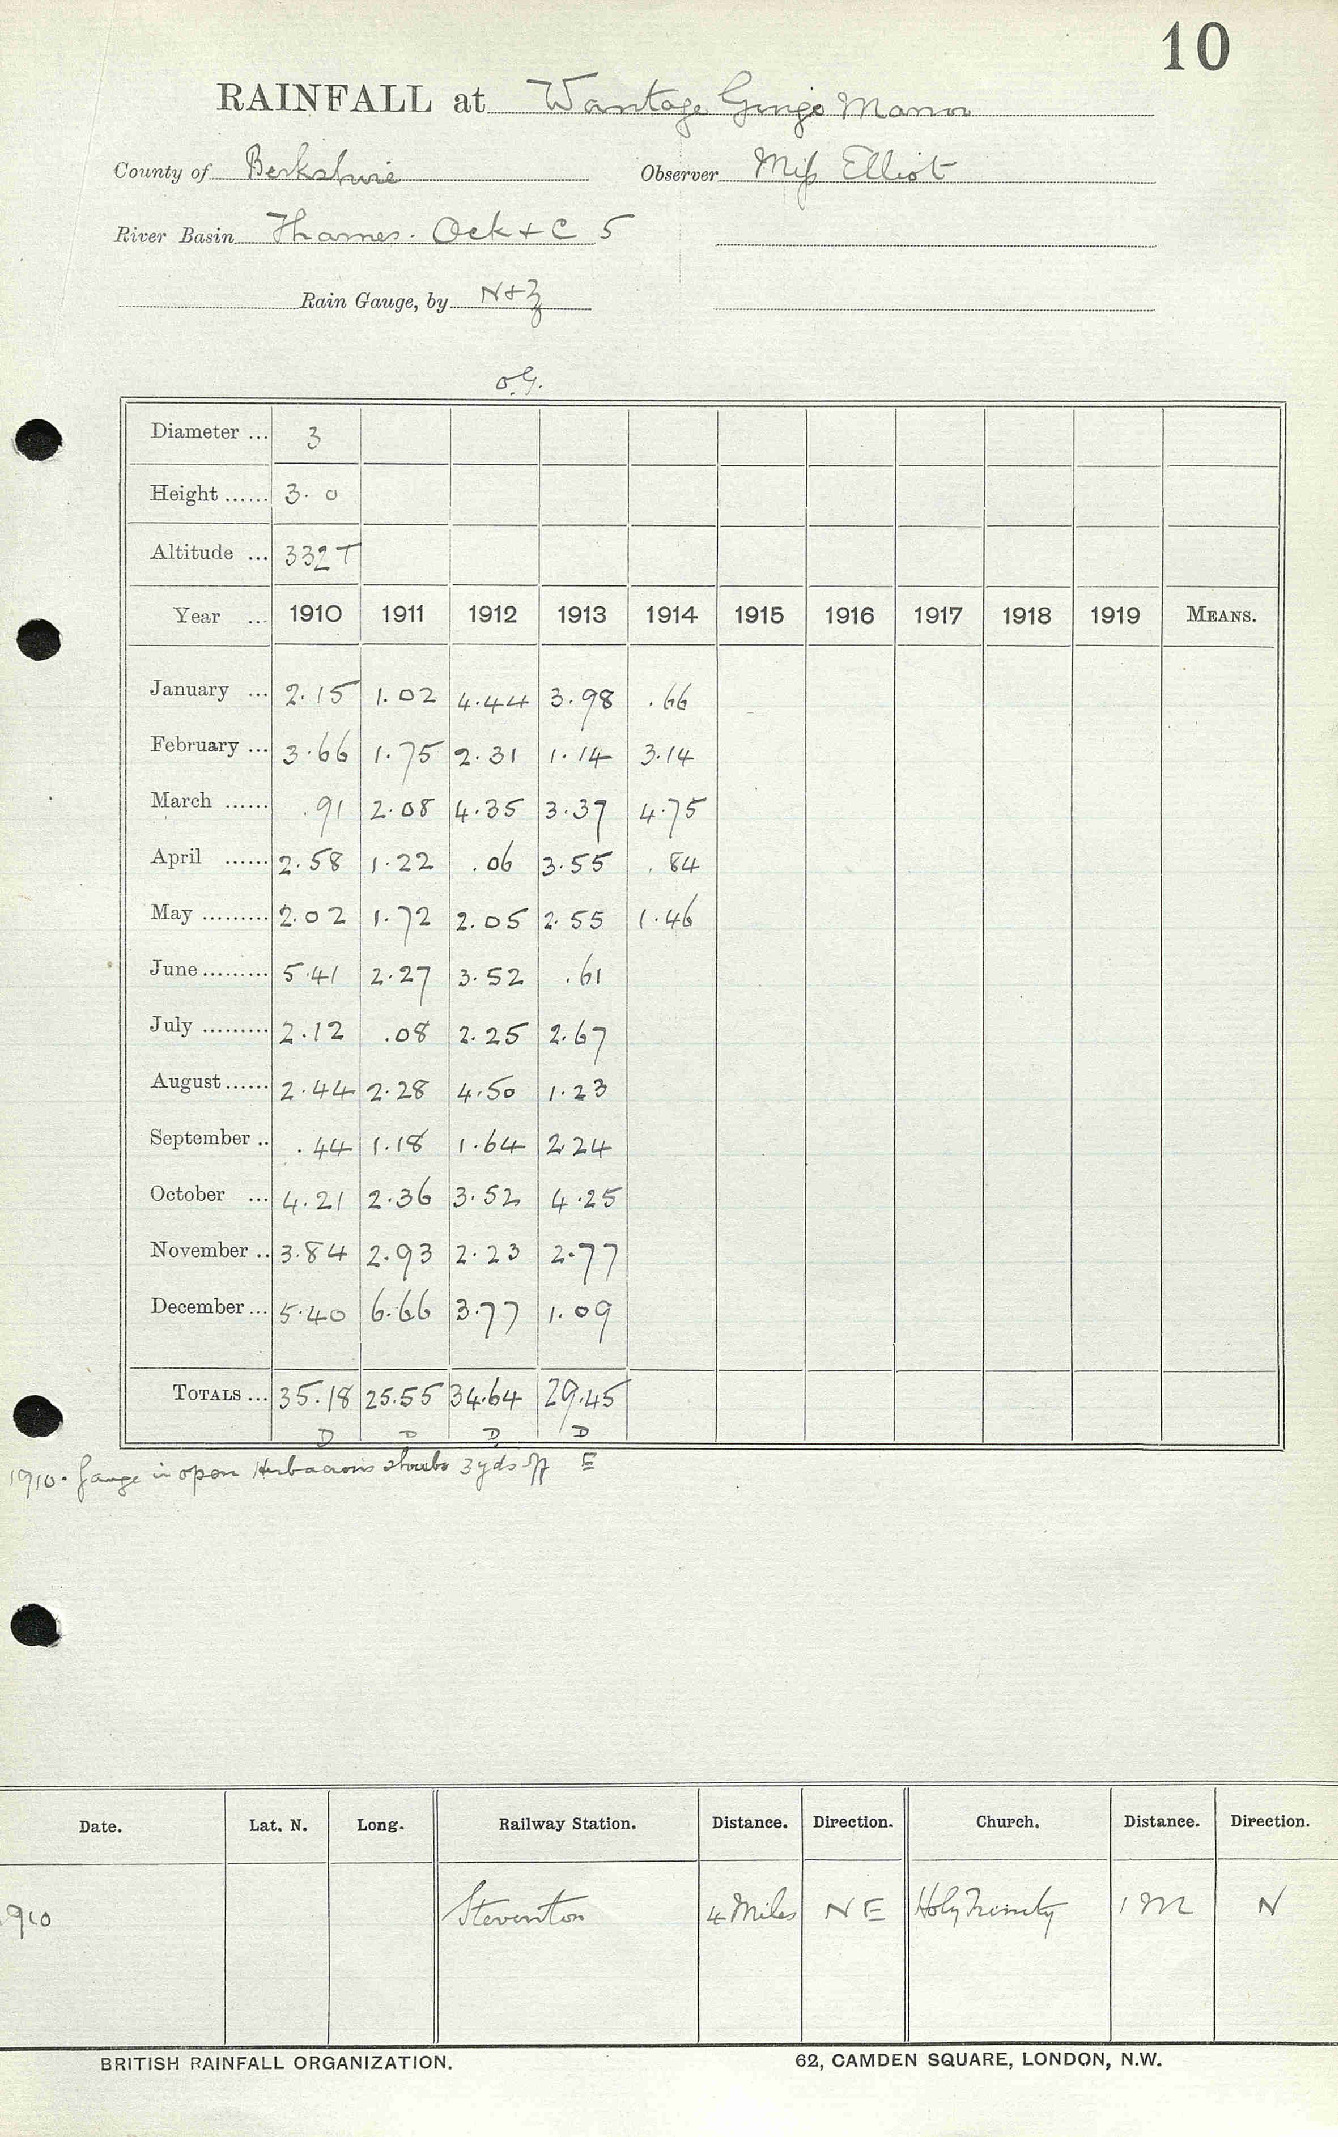 10
RAINFALL at Wantage Ginge Manor
County of Berkshire Observer Miss Elliot
River Basin Thames. Ock + C 5
Rain Gauge, by N+Z
o.G.
Diameter ... 3
Height ...... 3. 0
Altitude ... 332 T
Year ... 1910 1911 1912 1913 1914 1915 1916 1917 1918 1919 MEANS.
January ... 2.15 1.02 4.44 3.98 .66
February ... 3.66 1.75 2.31 1.14 3.14
March ...... .91 2.08 4.35 3.37 4.75
April ...... 2.58 1.22 .06 3.55 .84
May ......... 2.02 1.72 2.05 2.55 1.46
June ......... 5.41 2.27 3.52 .61
July ......... 2.12 .08 2.25 2.67
August ...... 2.44 2.28 4.50 1.23
September .. .44 1.18 1.64 2.24
October ... 4.21 2.36 3.52 4.25
November .. 3.84 2.93 2.23 2.77
December ... 5.40 6.66 3.77 1.09
TOTALS ... 35.18 25.55 34.64 29.45
D D D D
1910. Gauge in open Herbaceous shrubs 3 yds off E
Date. Lat. N. Long. Railway Station. Distance. Direction. Church. Distance. Direction.
1910 Steventon 4 Miles NE Holy Trinity 1 M N
BRITISH RAINFALL ORGANIZATION. 62, CAMDEN SQUARE, LONDON, N.W.